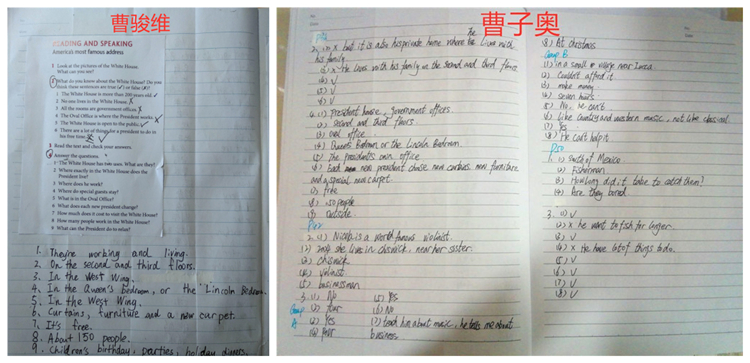 曹骏维
READING AND SPEAKING
America's most famous address
1 Look at the pictures of the White House. What can you see?
2 What do you know about the White House? Do you think these sentences are true (✓) or false (✗)?
1 The White House is more than 200 years old. ✓
2 No one lives in the White House. ✗
3 All the rooms are government offices. ✗
4 The Oval Office is where the President works.
5 The White House is open to the public. ✓
6 There are a lot of things for a president to do in his free time.
3 Read the text and check your answers.
4 Answer the questions.
1 The White House has two uses. What are they?
2 Where exactly in the White House does the President live?
3 Where does he work?
4 Where do special guests stay?
5 What is in the Oval Office?
6 What does each new president change?
7 How much does it cost to visit the White House?
8 How many people work in the White House?
9 What can the President do to relax?
1. They're working and living.
2. On the second and third floors.
3. In the West Wing.
4. In the Queen's Bedroom, or the Lincoln Bedroom.
5. In the West Wing.
6. Curtains, furniture and a new carpet.
7. It's free.
8. About 150 people.
9. Children's birthday, parties, holiday dinners.
曹子奥
but it is also his private home where he lives with
his family
(3) x He lives with his family on the second and third floors
(4) √
(5) √
(6) √
4. (1) President house, government offices.
(2) Second and third floors
(3) Oval office
(4) Queen's Bedroom or the Lincoln Bedroom.
(5) The president's own office
(6) Each new president chose new curtains new furniture
and a special new carpet.
(7) free
(8) 150 people
(9) outside
2. (1) Nicola is a world famous violinist.
(2) she lives in chiswick, near her sister.
(3) chiswick
(4) violinist
(5) businessman
3. (1) No
(2) four
(3) Yes
(4) four
(5) Yes
(6) No
(7) teach him about music, he tells me about
business
(8) At christmas
Group B
(1) in a small village near
(2) Couldn't afford it
(3) make money
(4) seven hours
(5) No. he can't
(6) Like country and western music, not like classical
(7) Yes
(8) He can't help it
1. (1) South of Mexico
(2) Fisherman
(3) How long did it take to catch them?
(4) Are they bored
3. (1) √
(2) x he want to fish for longer
(3) √
(4) x He have lot of things to do.
(5) √
(6) √
(7) √
(8) √